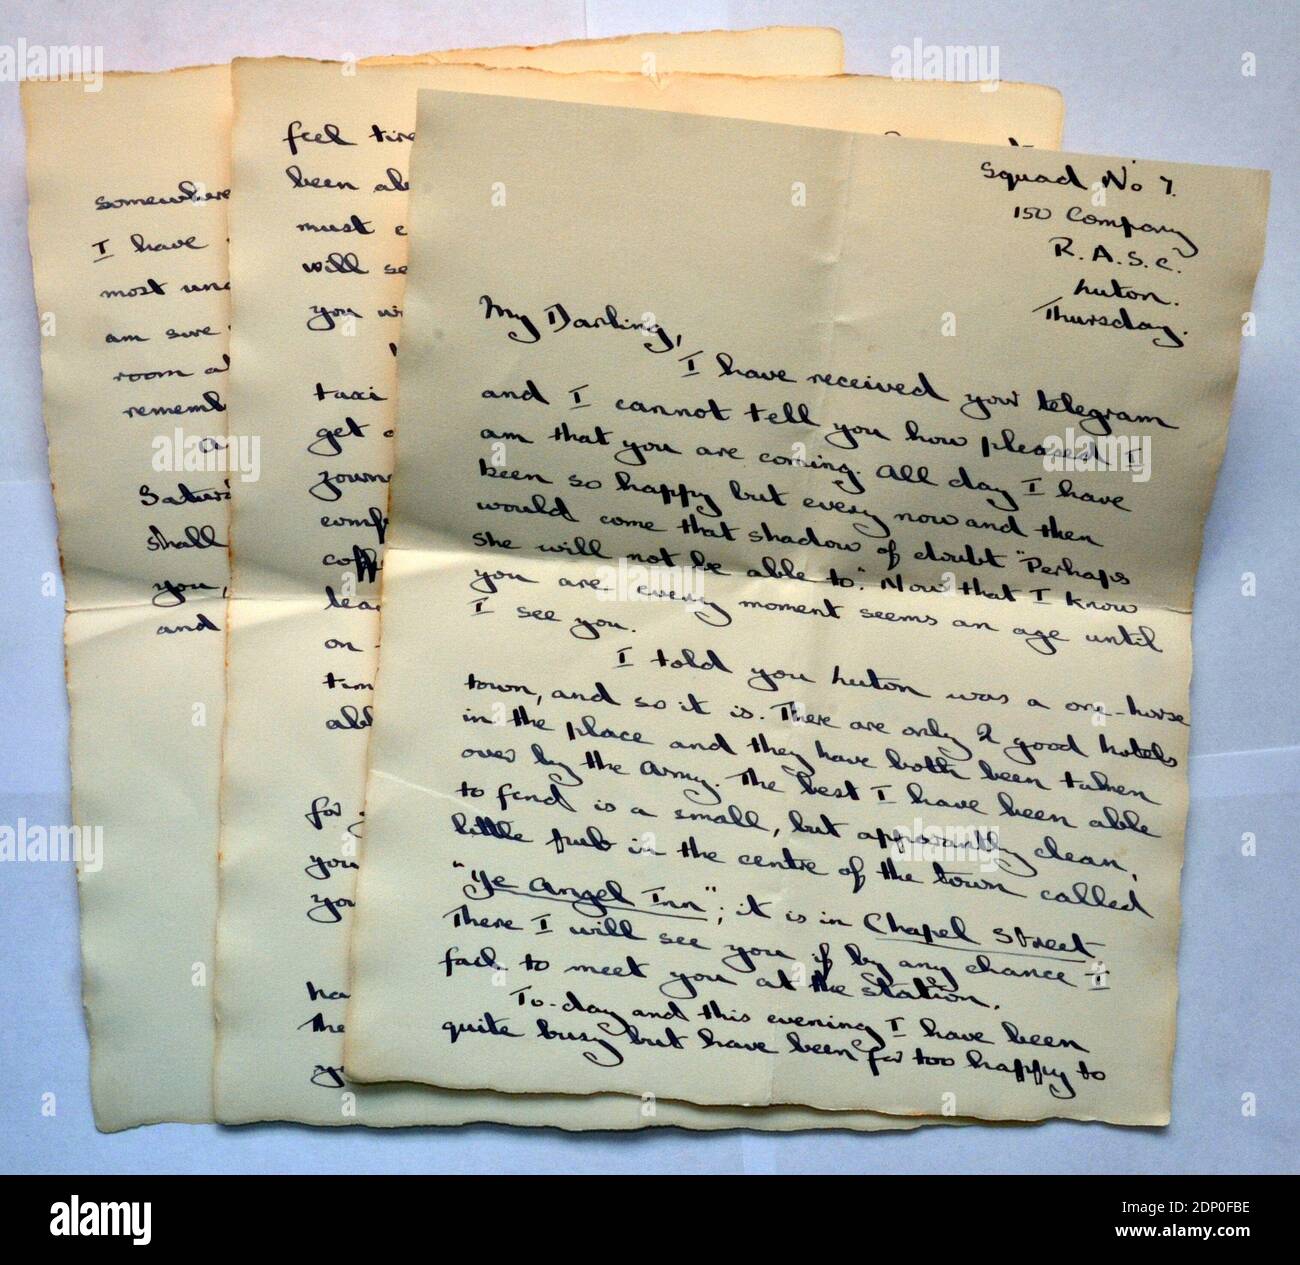 Squad No 7.
150 Company
R.A.S.C.
Luton.
Thursday.
My Darling,
I have received your telegram
and I cannot tell you how pleased I
am that you are coming. All day I have
been so happy but every now and then
would come that shadow of doubt "Perhaps
she will not be able to". Now that I know
you are every moment seems an age until
I see you.
I told you Luton was a one-horse
town, and so it is. There are only 2 good hotels
in the place and they have both been taken
over by the Army. The best I have been able
to find is a small, but apparantly clean,
little pub in the centre of the town called
"Ye Angel Inn"; it is in Chapel Street
There I will see you if by any chance I
fail to meet you at the station.
To-day and this evening I have been
quite busy but have been far too happy to
feel tire
been ab
must e
will se
you wi
taxi
get a
journ
comf
coff
lea
on
tim
abl
for y
you
you
ha
the
yo
somewhere
I have
most una
am sure
room al
rememb
a
Satur
shall
you,
and
alamy
Image ID: 2DP0FBE
www.alamy.com